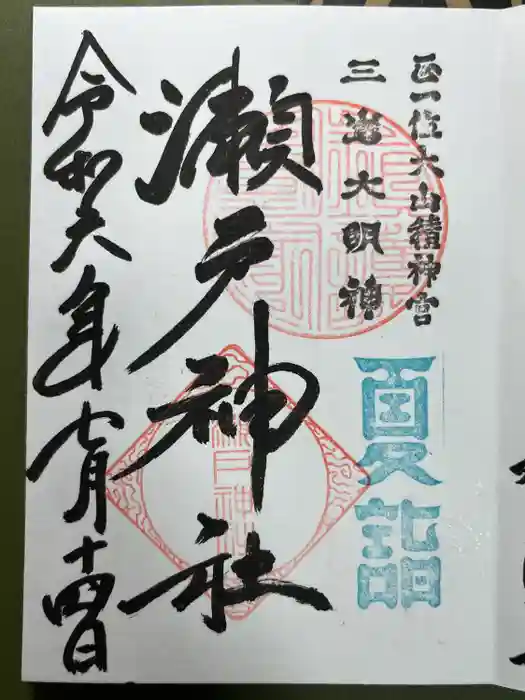 正一位大山積神宮
三嶋大明神
夏詣
瀬戸神社
令和六年七月十四日